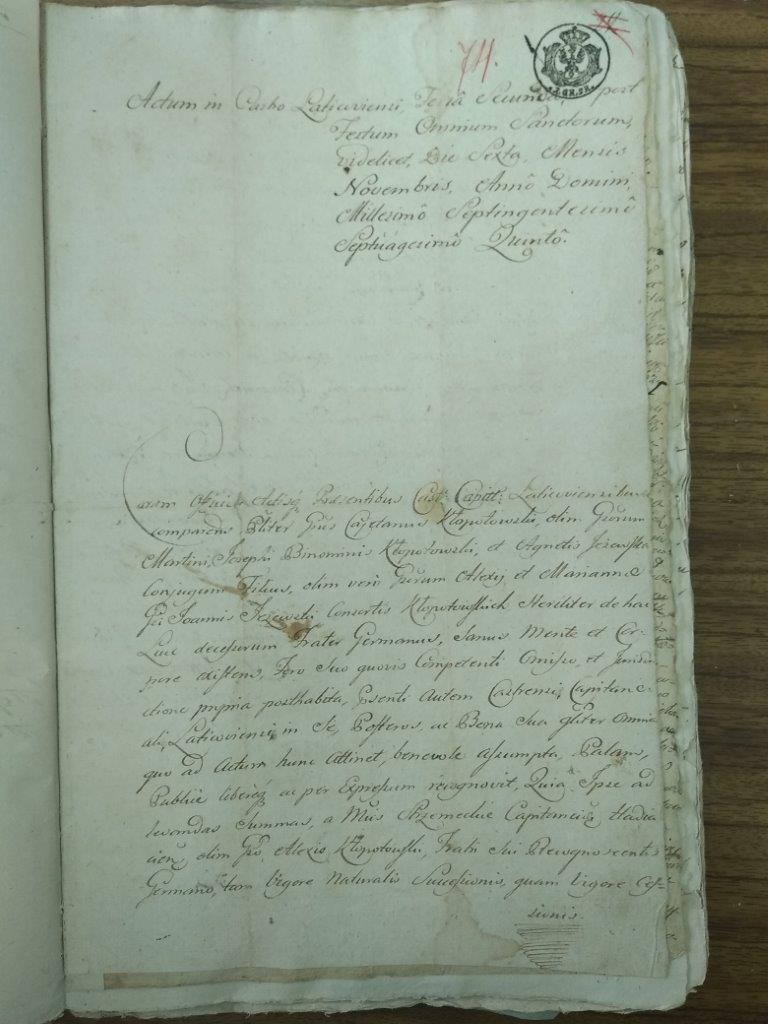 74.
Actum in Castro Laticoviensi, Feria Secunda, post
Festum Omnium Sanctorum,
videlicet, Die Sexta, Mensis
Novembris, Annô Domini,
Millesimô Septingentesimô
Septuagesimô Quintô.
Coram Officio Actisq; Præsentibus Cast: Capit: Laticoviensibus
comparens Gliter Grus Cajetanus Kłopotowski, olim Grorum
Martini, Josephi Binominis Kłopotowski, et Agnetis Jezewska
Conjugum Filius, olim verò Grorum Alexij et Marianna
Gsi Joannis Jezewski Consortis Kłopotowskich steriliter de hac
Luce decessorum Frater Germanus, Sanus Mente et Cor-
pore existens, Foro Suo quovis Competenti Omisso, et Jurisdi-
ctione propria posthabita, Psenti Autem Castrensi Capitane-
ali, Laticoviensi in Se, Posteros, ac Bona Sua gliter Omnia
quo ad Actum hunc Attinet, benevole assumpta, Palam,
Publice libereq; ac per Expressum recognovit, Quia Ipse ad
levandas Summas, a Mcis Strzemeckie Capitaneis Hadia
cien, olim Gso Alexio Kłopotowski, Fratri Sui Recognoscentis
Germano, tam Vigore Naturalis Successionis, quam Vigore Ces-
sionis